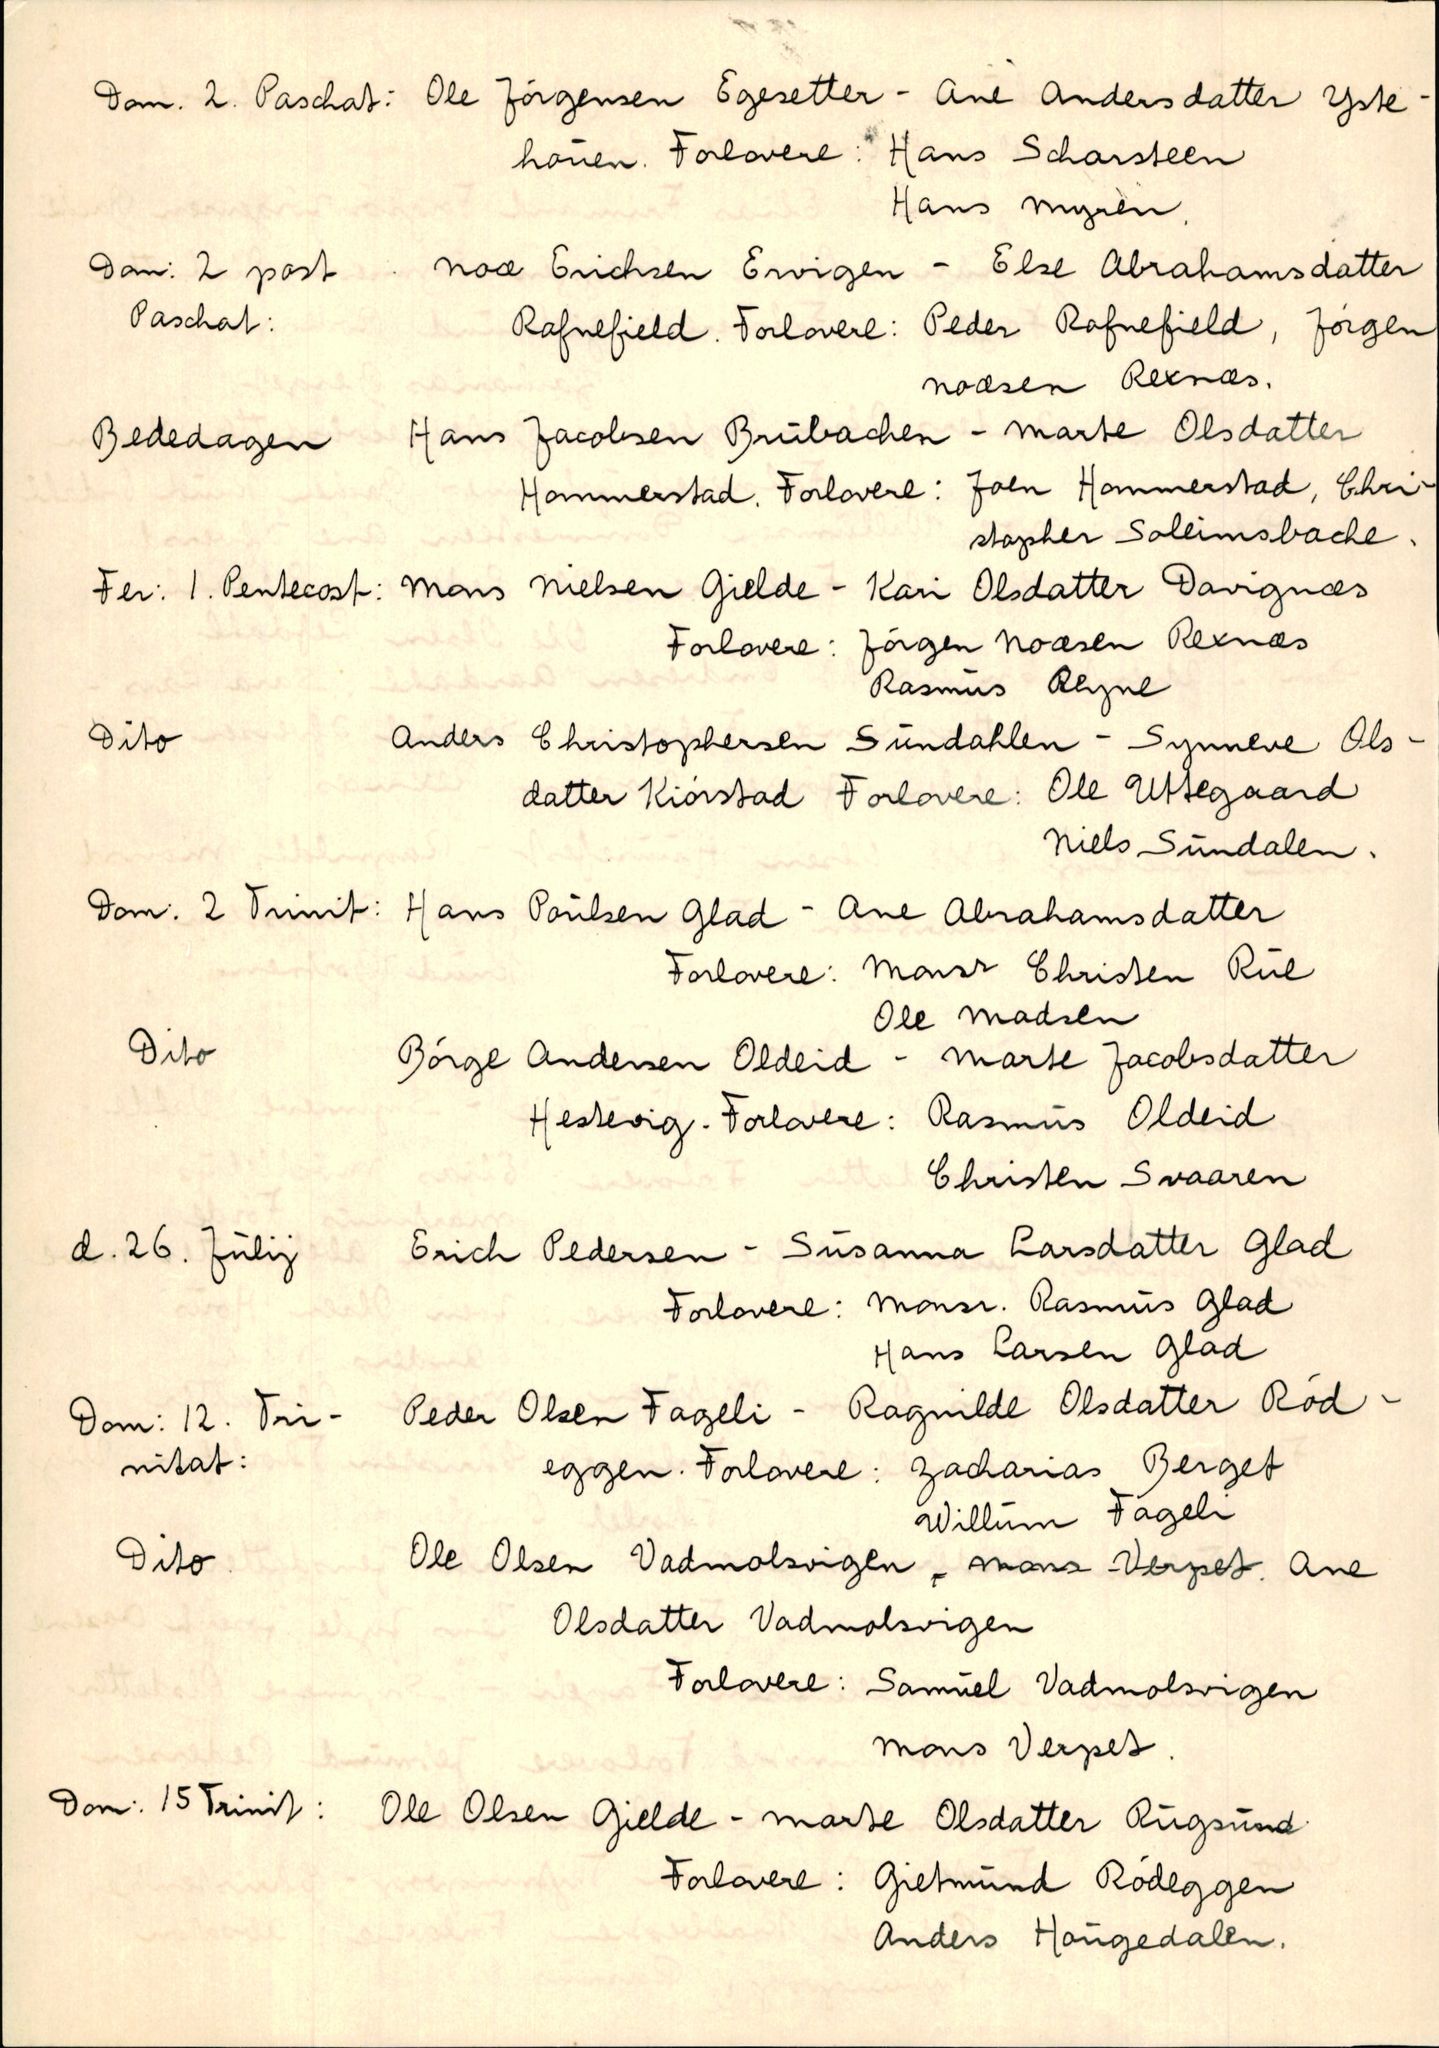 Dom. 2. Paschat: Ole Jörgensen Egesetter - Ane Andersdatter Yste-
houen. Forlovere: Hans Scharsteen
Hans Myren.
Dom: 2 post Noæ Erichsen Ervigen - Else Abrahamsdatter
Paschat: Rafnefield. Forlovere: Peder Rafnefield, Jörgen
Noæsen Rexnæs.
Bededagen Hans Jacobsen Brubachen - Marte Olsdatter
Hommerstad. Forlovere: Joen Hommerstad, Chri-
stopher Soleimsbache.
Fer: 1. Pentecost: Mons Nielsen Gielde - Kari Olsdatter Davignæs
Forlovere: Jörgen Noæsen Rexnæs
Rasmus Reyne
Dito Anders Christophersen Sundahlen - Synneve Ols-
datter Kiörstad Forlovere: Ole Uttegaard
Niels Sundalen.
Dom. 2 Trinit: Hans Poulsen Glad - Ane Abrahamsdatter
Forlovere: Monsr Christen Rue
Ole Madsen
Dito Börge Andersen Oldeid - Marte Jacobsdatter
Hestevig. Forlovere: Rasmus Oldeid
Christen Svaaren
d. 26. Julij Erich Pedersen - Susanna Larsdatter Glad
Forlovere: Monsr. Rasmus Glad
Hans Larsen Glad
Dom: 12. Tri- Peder Olsen Fageli - Ragnilde Olsdatter Röd-
nitat: eggen. Forlovere: Zacharias Berget
Willum Fageli
Dito Ole Olsen Vadmolsvigen - Mons Verpet. Ane
Olsdatter Vadmolsvigen
Forlovere: Samuel Vadmolsvigen
Mons Verpet.
Dom: 15 Trinit: Ole Olsen Gielde - Marte Olsdatter Rugsund
Forlovere: Gietmund Rödeggen
Anders Hougedalen.